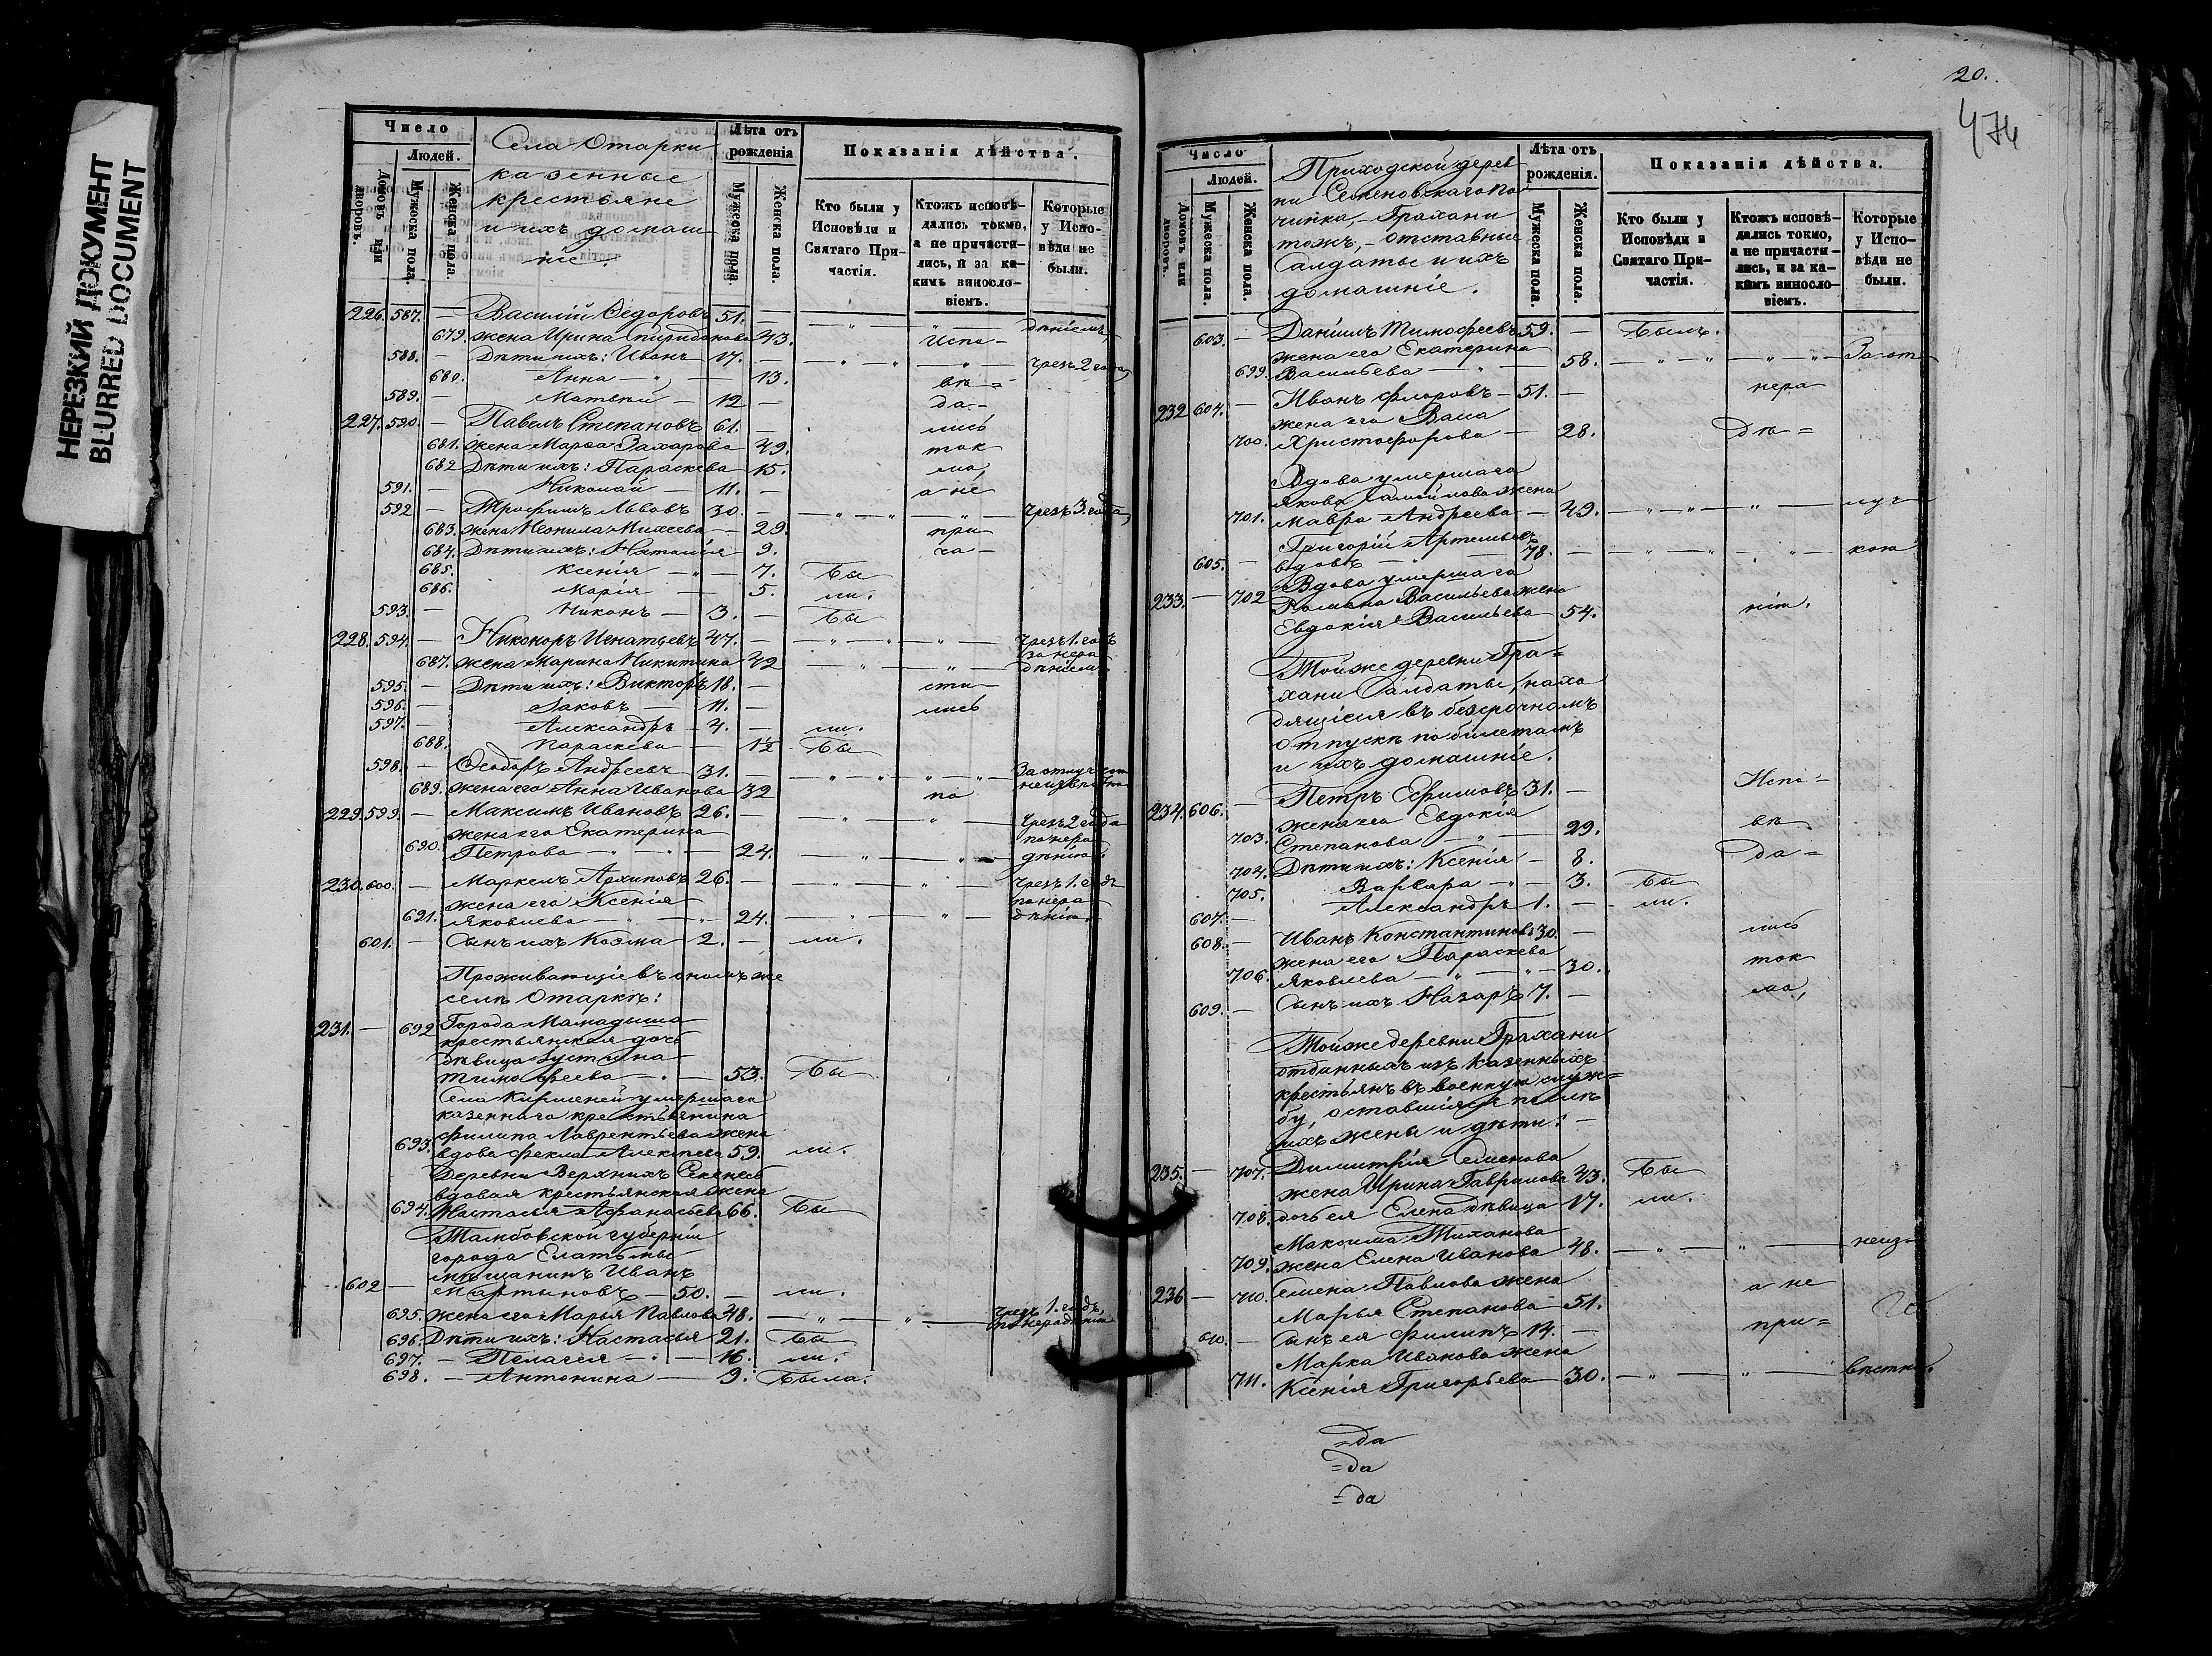 НЕРЕЗКИЙ ДОКУМЕНТ
BLURRED DOCUMENT
Число
Людей.
Домовъ или дворовъ.
Мужеска пола.
Женска пола.
Села Отарки
казенные
крестьяне
и ихъ домаш
ніе.
Лѣта отъ рожденія
Мужеска пола.
Женска пола.
Показанія дѣйства.
Кто были у Исповѣди и Святаго Причастія.
Ктожъ исповѣдались токмо, а не причастились, и за какимъ винословіемъ.
Которые у Исповѣди не были.
226. 587. — Василій Ѳедоровъ 51. — дѣніемъ
679. жена Ирина Спиридонова 43. Испо-
588. — Дѣти ихъ: Иванъ 17. — чрезъ 2 года
680. Анна — 13. вѣ=
589. — Матвѣй — 12 — да-
227. 590. — Павелъ Степановъ 61. — лись
681. жена Марѳа Захарова 49. ток
682 Дѣти ихъ: Параскева 15. мо,
591. — Николай — 11. — а не
592 — Трофимъ Львовъ 30. — чрезъ 3. года
683. жена Неонила Михеева — 29. при
684. Дѣти ихъ: Наталія 9. ча-
685. Ксенія — 7. Бы
686. Марія — 5. ли.
593. — Никонъ — 3. — Бы
228. 594. — Никоноръ Игнатьевъ 47. — чрезъ 1. годъ
за нера
687. жена Марина Никитина 42 дѣніемъ
595. — Дѣти ихъ: Викторъ 18. — сти
596. — Іаковъ — 11. — лись
597. — Александръ — 4. — ли.
688. Параскева — 1½ Бы
598. — Ѳеодоръ Андреевъ 31. — За отлуч
689. жена его Анна Иванова 32 по
229. 599. — Максимъ Ивановъ 26. — чрезъ 2 года
жена его Екатерина по нера
690. Петрова — 24. дѣнію
230. 600. — Маркелъ Архиповъ 26. — чрезъ 1. годъ
жена его Ксенія по нера
691. Яковлева — 24. дѣнію
601. — Сынъ ихъ Козма 2. — ли.
Проживающіе въ ономъ же
селѣ Отаркѣ:
231. — 692 Города Мамадыша
крестьянская дочь
дѣвица Іустина
Тимофеева — 53. Бы
Села Кирменей умершаго
казеннаго крестьянина
Филипа Лаврентьева жена
693. вдова Фекла Алекпева 59. ли.
Деревни Верхнихъ Секенесь
вдовая крестьянская жена
694. Настасья Афанасьева 66. Бы
Тамбовской губерніи
города Елатьмы
мѣщанинъ Иванъ
602 — Мартыновъ — 50. — ли.
695. жена его Марья Павлова 48. чрезъ 1. годъ,
по нерадѣнію
696. Дѣти ихъ: Настасья 21. Бы
697. — Пелагея — 16. ли.
698. — Антонина — 9. Была.
20.
474
Число
Людей.
Домовъ или дворовъ.
Мужеска пола.
Женска пола.
Приходской дерев
ни Семеновскаго по
чинка, — Грахани
тожъ, — отставные
Салдаты и ихъ
домашніе.
Лѣта отъ рожденія.
Мужеска пола.
Женска пола.
Показанія дѣйства.
Кто были у Исповѣди и Святаго Причастія.
Ктожъ исповѣдались токмо, а не причастились, и за какимъ винословіемъ.
Которые у Исповѣди не были.
603. — Даніилъ Тимофеевъ 59. — Былъ.
жена его Екатерина
699. Васильева — 58. За от
232 604. — Иванъ Флоровъ — 51. — нера
жена его Васа
700. Христофорова — 28. дѣ=
Вдова умершаго
Якова Самойлова жена
701. Мавра Андреева — 49. луч
Григорій Артемьевъ
605. — вдовъ — 78. — кою
Вдова умершаго
233. — 702 Романа Васильева жена
Евдокія Васильева 54. нім.
Той же деревни Гра=
хани Салдаты, нахо
дящіеся въ безсрочномъ
отпускѣ по билетамъ
и ихъ домашніе.
234. 606. — Петръ Ефимовъ 31. — Испо=
жена его Евдокія
703. Степанова — 29. вѣ
704. Дѣти ихъ: Ксенія — 8. да=
705. Варвара — 3. Бы
607. — Александръ 1. — ли.
608. — Иванъ Константиновъ 30. — лись
жена его Параскева
706. Яковлева — 30. ток
609. — Сынъ ихъ Назаръ 7. — мо,
Той же деревни Грахани
отданныхъ изъ казенныхъ
крестьянъ въ военную служ=
бу, оставшіяся послѣ
ихъ жены и дѣти: —
235. — 707. Димитрія Семенова
жена Ирина Гаврилова 43. Бы
708. дочь ея Елена дѣвица 17. ли.
Максима Тиханова
709. жена Елена Иванова 48. неиз-
236 — 710. Семена Павлова жена а не
Марья Степанова 51.
610. — Сынъ ея Филипъ 14. — при=
Марка Иванова жена
711. Ксенія Григорьева 30. вѣстно
=да
=да
=да